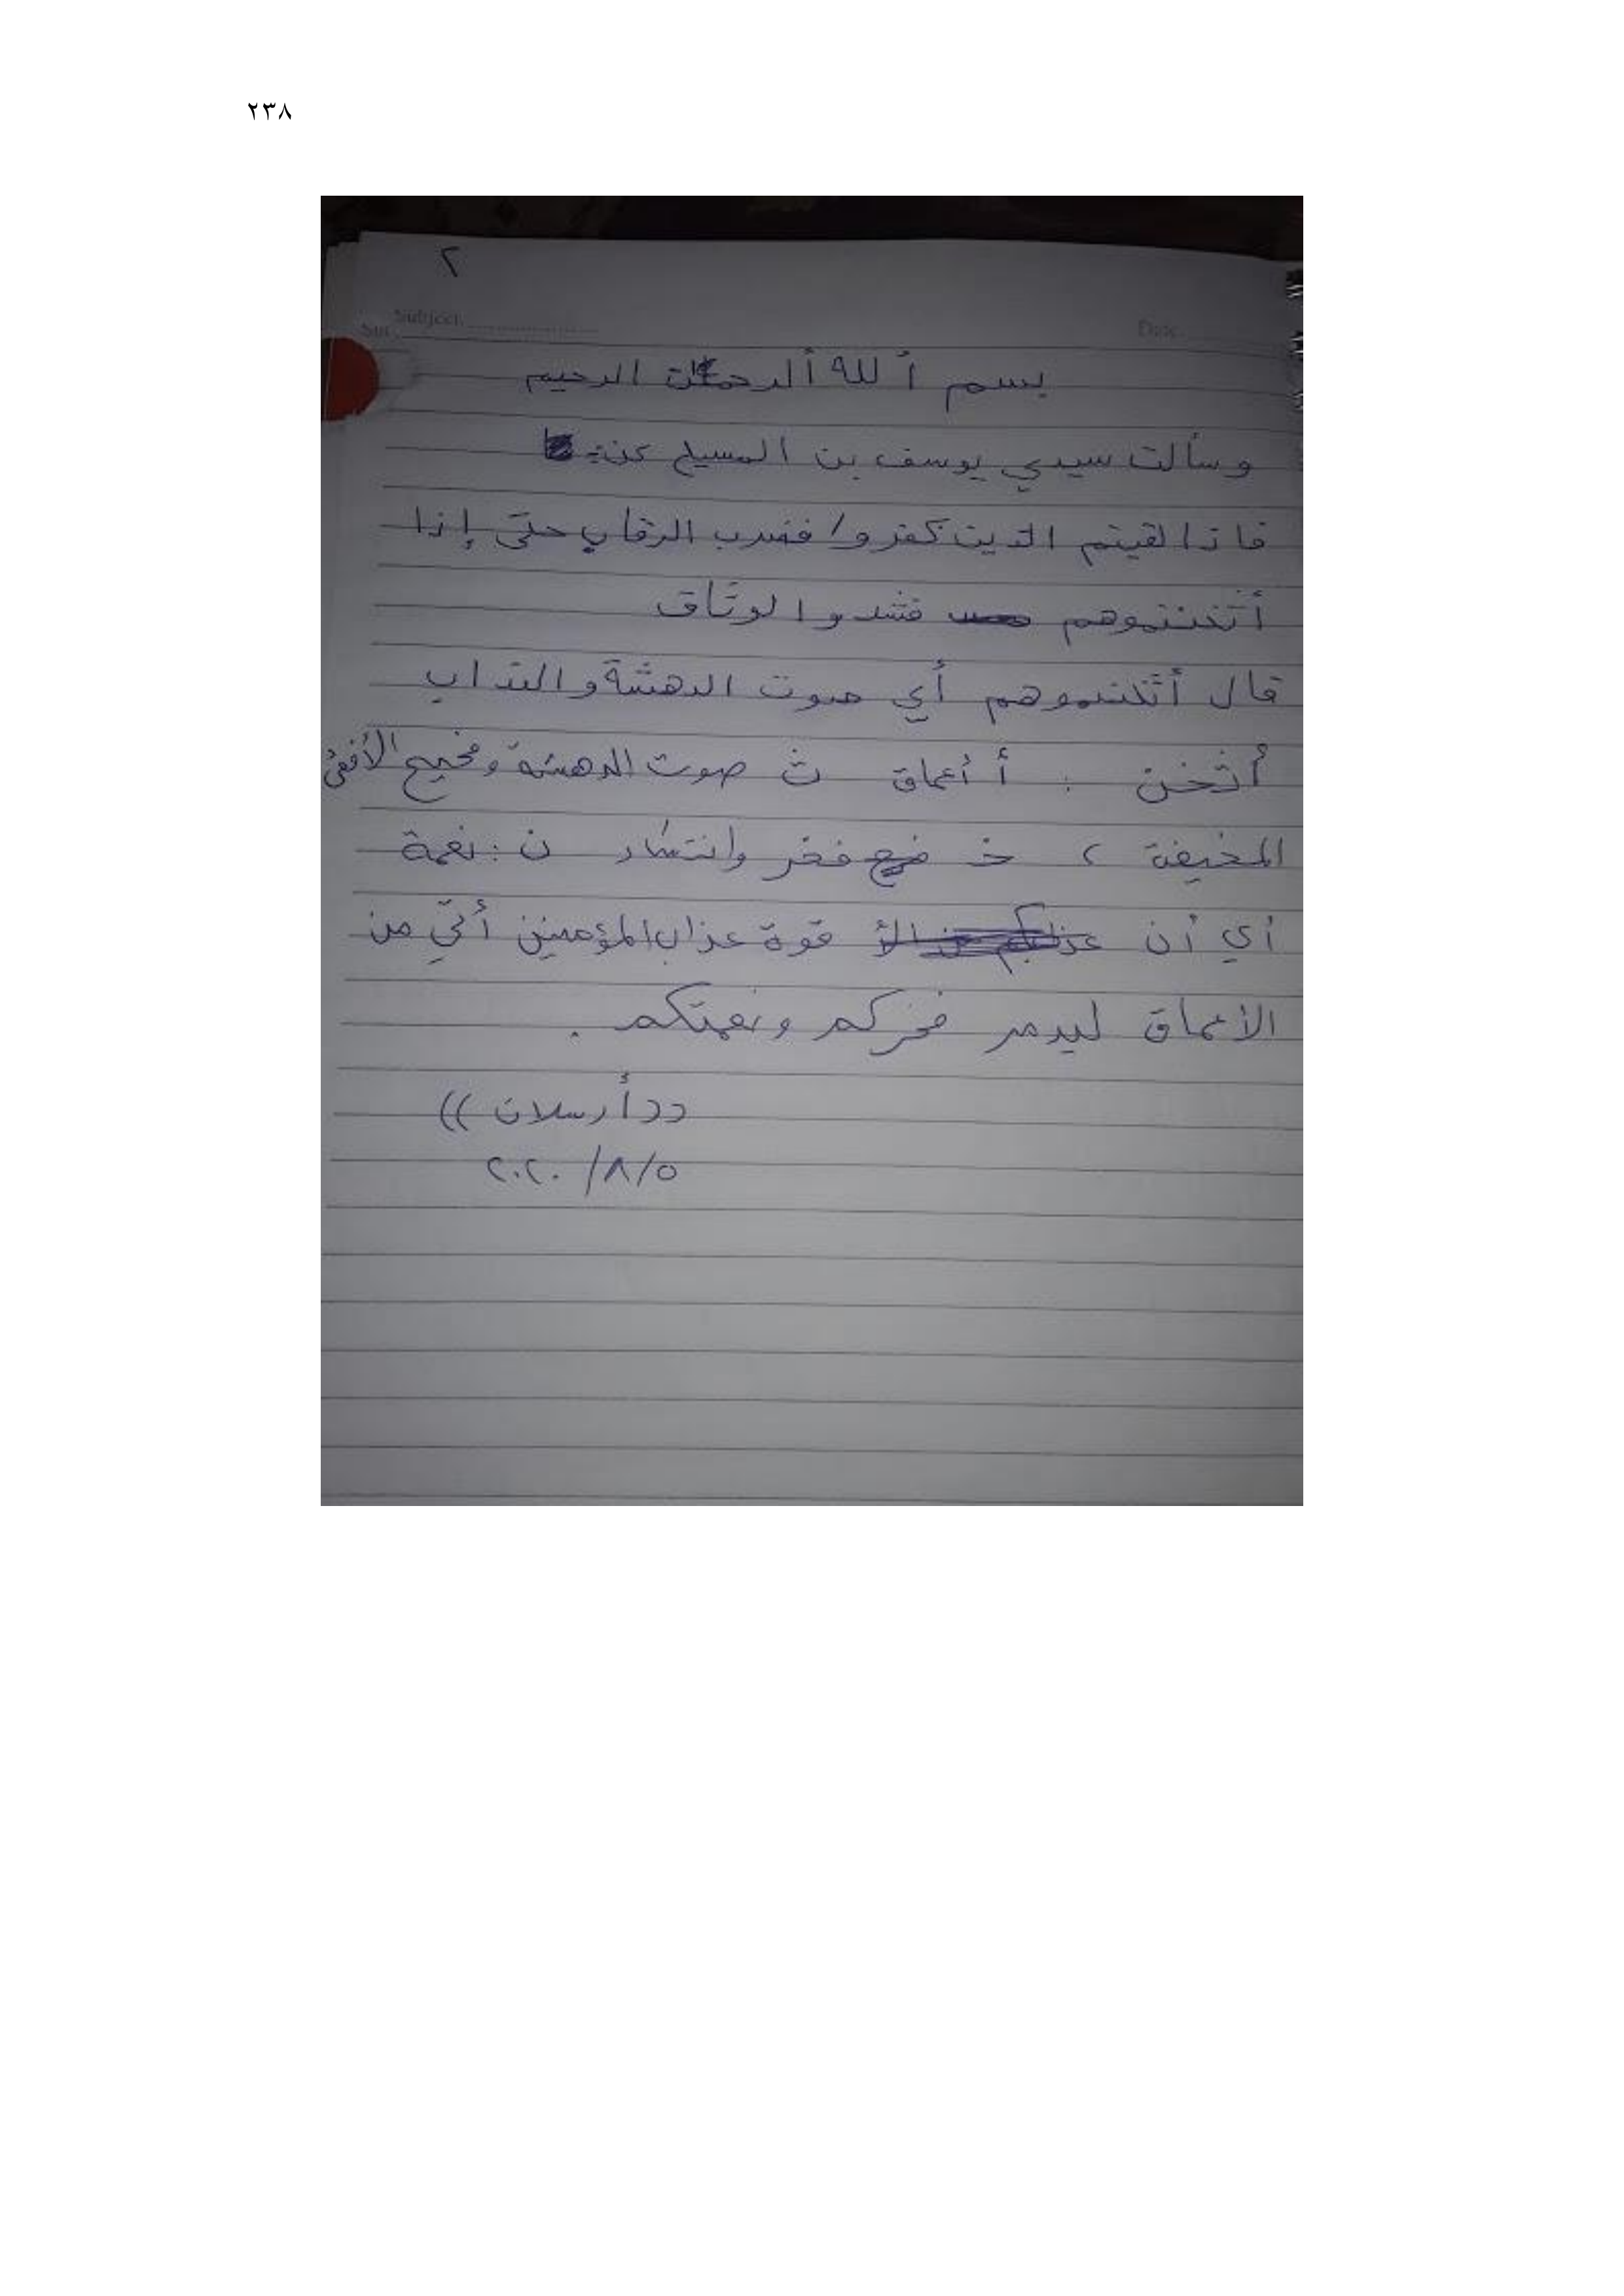 ٢٣٨
٢
Subject:
Date:
بسم ألله ألرحمان الرحيم
وسألت سيدي يوسف بن المسيح عن:
فاذا لقيتم الذين كفروا فضرب الرقاب حتى إذا
أثخنتموهم فشدوا الوثاق
قال أثخنتموهم أي صوت الدهشة والعذاب
أثخن : أ أعماق ث صوت الدهشة وفحيح الأفعى
المخيفة ، خ فخر وانتشار ن : نعمة
أي أن قوة عذاب المؤمنين أتي من
الأعماق ليدمر فخركم ونعمتكم .
((أرسلان))
٥/٨/٢٠٢٠